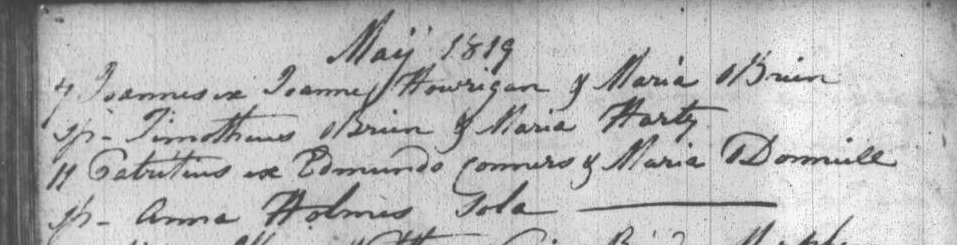 Maij 1819
7 Joannes ex Joanne Hourigan & Maria OBrien
sp- Timotheus OBrien & Maria Harty
11 Patritius ex Edmundo Conners & Maria ODonniell
sp- Anna Holmes Sola